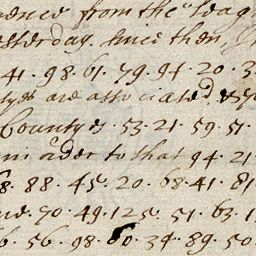 from the
yesterday. since then,
41. 98. 61. 79. 94. 20. 3
are associated
Countyes. 53. 21. 59. 51.
in order to that 94. 21
8. 88. 45. 20. 68. 41. 81
70. 49. 125. 51. 63. 1
6. 56. 98. 60. 34. 89. 50